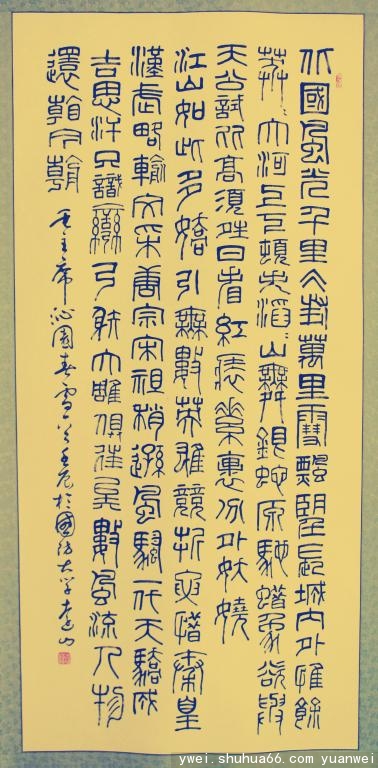 北國風光千里冰封萬里雪飄望長城内外惟餘
莽莽大河上下頓失滔滔山舞銀蛇原馳蠟象欲與
天公試比高須晴日看紅裝素裹分外妖嬈
江山如此多嬌引無數英雄競折腰惜秦皇
漢武略輸文采唐宗宋祖稍遜風騷一代天驕成
吉思汗只識彎弓射大雕俱往矣數風流人物
還看今朝 毛主席沁園春雪 壬辰於國防大学
ywei.shuhua66.com yuanwei